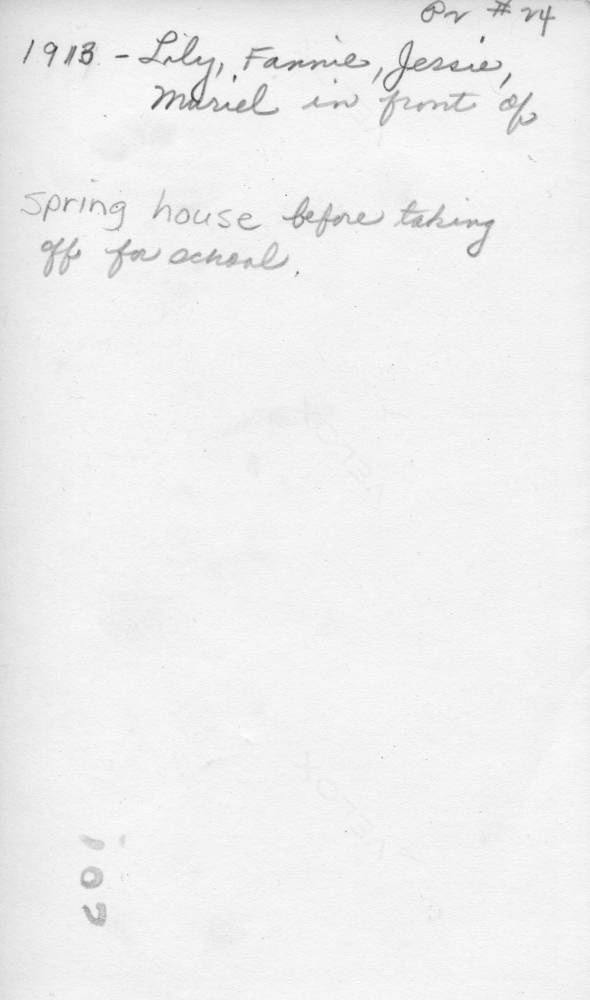 Pr # 24
1913 - Lily, Fannie, Jessie,
Muriel in front of
spring house before taking
off for school.
102